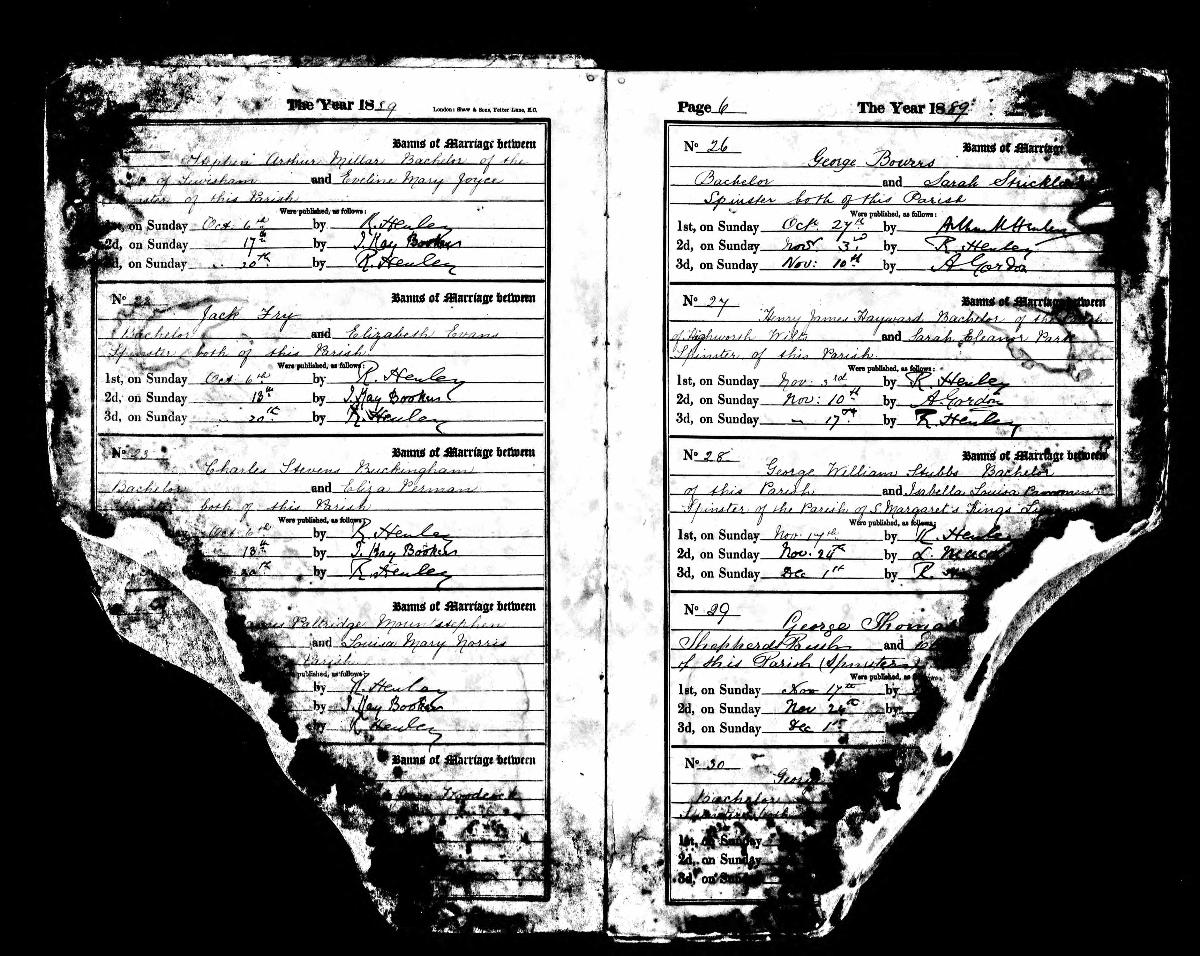 The Year 1889
London: Shaw & Sons, Fetter Lane, E.C.
Banns of Marriage between
Arthur Millar Bachelor of the
of Lewisham and Eveline Mary Joyce
of this Parish
Were published, as follows:
1st, on Sunday Oct 6th by R. Henley
2d, on Sunday 17th by J. Kay Booker
3d, on Sunday 20th by R. Henley
No 22 Banns of Marriage between
Jack Fry
Bachelor and Elizabeth Evans
Spinster both of this Parish
Were published, as follows:
1st, on Sunday Oct 6th by R. Henley
2d, on Sunday 13th by J. Kay Booker
3d, on Sunday 20th by R. Henley
No 23 Banns of Marriage between
Charles Stevens Buckingham
Bachelor and Eliza Perman
both of this Parish
Were published, as follows:
on Sunday Oct 6th by R. Henley
on Sunday 13th by J. Kay Booker
on Sunday 20th by R. Henley
Banns of Marriage between
Paltridge Mountstephen
and Louisa Mary Norris
Parish
published, as follows:
by R. Henley
by J. Kay Booker
by R. Henley
Banns of Marriage between
Page 6 The Year 1889
No 26 Banns of Marriage
George Bowers
Bachelor and Sarah
Spinster both of this Parish
Were published, as follows:
1st, on Sunday Oct. 27th by Henley
2d, on Sunday Nov. 3rd by R. Henley
3d, on Sunday Nov: 10th by A. Gordon
No 27 Banns of Marriage between
Henry James Hayward Bachelor of the
of Highworth Wilts and Sarah Eleanor
Spinster of this Parish.
Were published, as follows:
1st, on Sunday Nov: 3rd by R. Henley
2d, on Sunday Nov: 10th by A. Gordon
3d, on Sunday 17th by R. Henley
No 28 Banns of Marriage between
George William Stubbs Bachelor
of this Parish and Isabella Louisa
Spinster of the Parish of S. Margaret's Kings
Were published, as follows:
1st, on Sunday Nov 17th by R. Henley
2d, on Sunday Nov. 24th by
3d, on Sunday Dec 1st by R.
No 29
George Thomas
Shepherd and
of this Parish (Spinster)
Were published, as
1st, on Sunday Nov 17th by
2d, on Sunday Nov 24th by
3d, on Sunday Dec 1st
No 30
George
Bachelor
1st, on Sunday
2d, on Sunday
3d, on Sunday